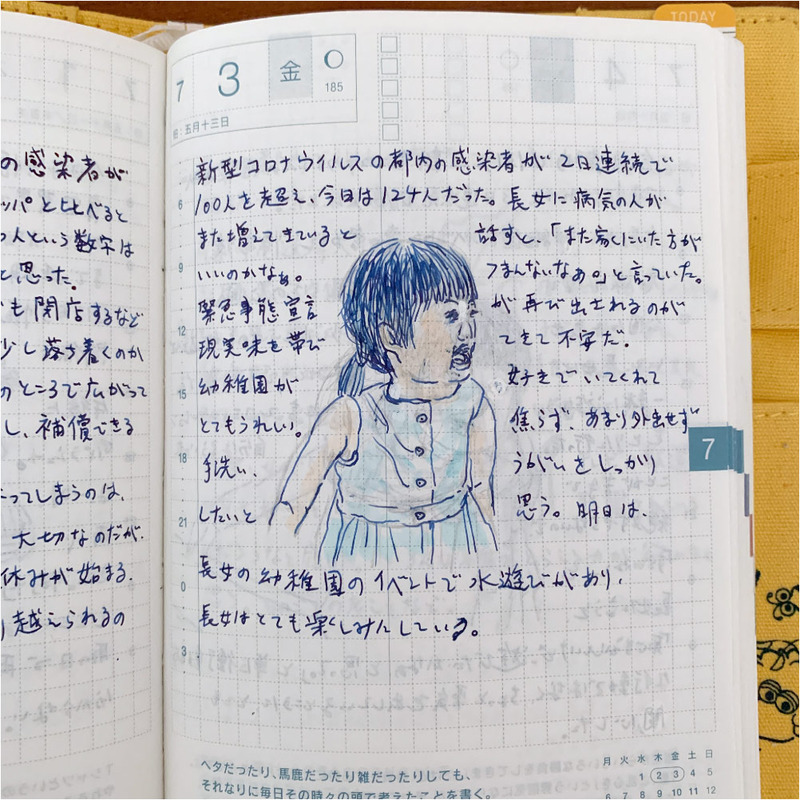 の感染者が
ッパとヒヒべると
人という数字は
と思った。
も閉店するなど
少し落ち着くのか
のところで広がって
し、補償できる
ってしまうのは、
大切なのだが、
休みが始まる。
越えられるの
TODAY
7 3 金 185
五月十三日
新型コロナウイルスの都内の感染者が2日連続で
6 100人を超え、今日は124人だった。長女に病気の人が
また増えてきていると 話すと、「また家にいた方が
9 いいのかなぁ。 つまんないなぁ。」と言っていた。
緊急事態宣言 が再び出されるのが
12 現実味を帯び てきて不安だ。
幼稚園が 好きでいてくれて
15 とてもうれしい。 焦らず、あまり外出せず
18 手洗い、 うがいをしっかり
21 したいと 思う。明日は、
0 長女の幼稚園のイベントで水遊びがあり、
長女はとても楽しみにしている。
3
7
ヘタだったり、馬鹿だったり雑だったりしても、
それなりに毎日その時々の頭で考えたことを書く。
月 火 水 木 金 土 日
1 2 3 4 5